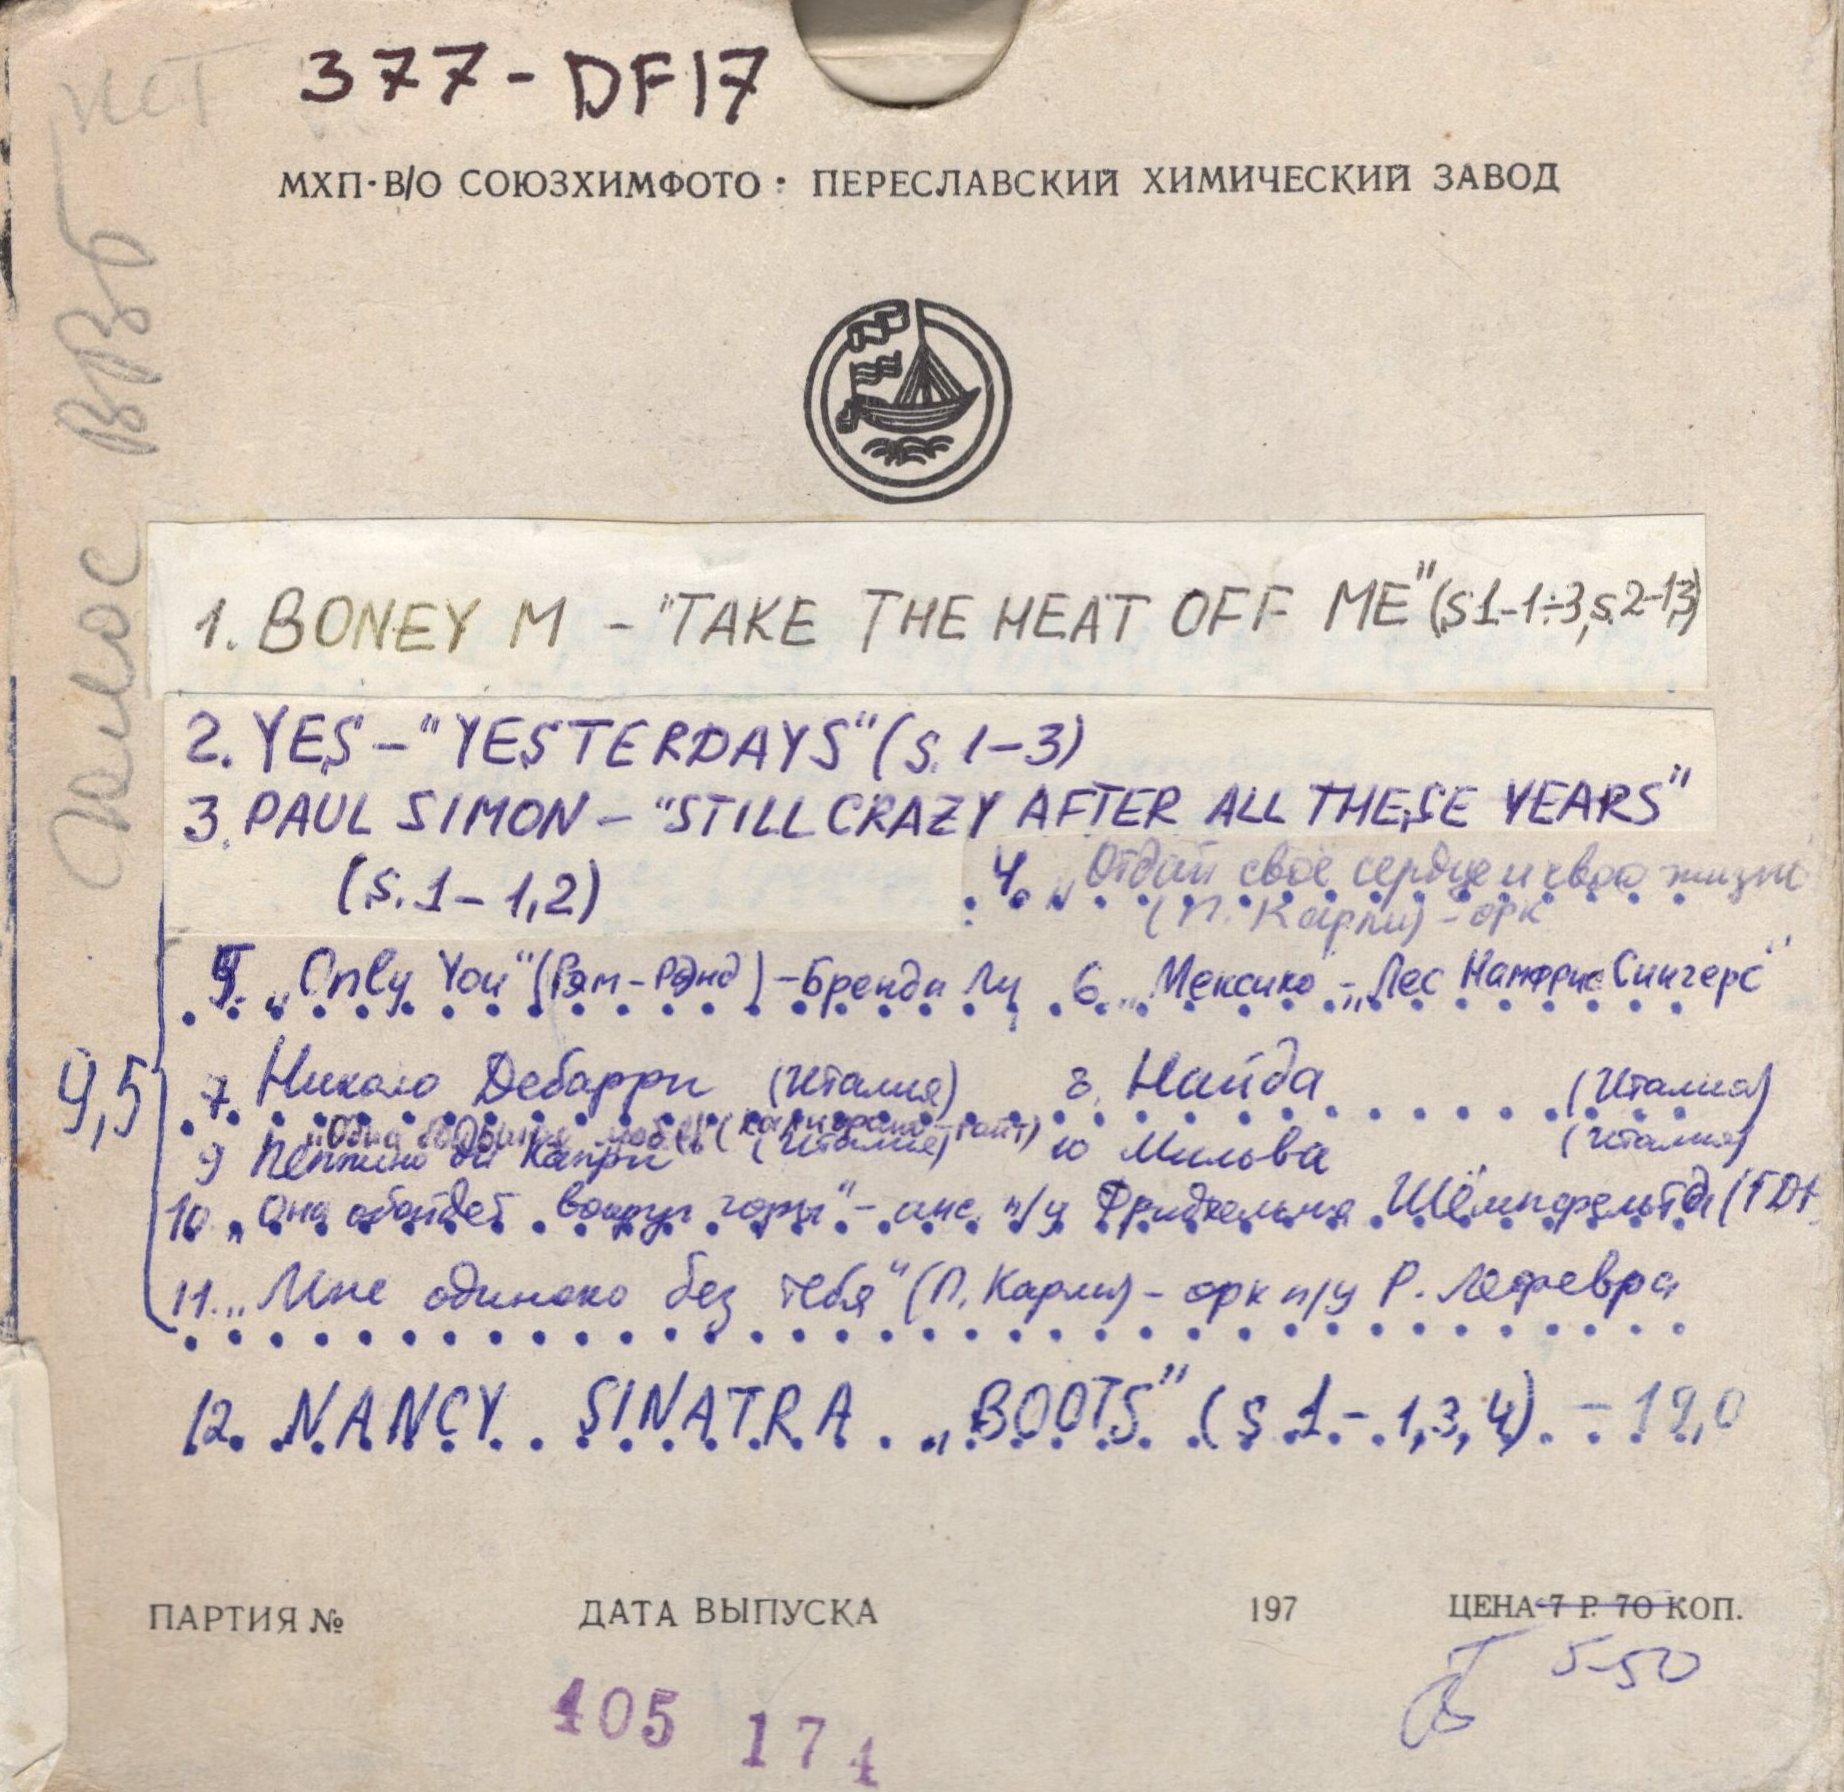 377-DF17
МХП·В/О СОЮЗХИМФОТО · ПЕРЕСЛАВСКИЙ ХИМИЧЕСКИЙ ЗАВОД
1. BONEY M - "TAKE THE HEAT OFF ME" (S1-1÷3, S.2-1,3)
2. YES - "YESTERDAYS" (S. 1-3)
3. PAUL SIMON - "STILL CRAZY AFTER ALL THESE YEARS"
(S. 1 - 1,2)
4. „Отдай своё сердце и свою жизнь
(П. Карли) - орк
5. „Only You" (Рэм-Рэнд) - Бренда Ли 6 „Мексика" - „Лес Хамфрис Сингерс"
9,5
7. Николо Дебарри (Италия) 8. Найда (Италия)
9 Пеппино ди Капри (Италия) 10 Мильва (Италия)
10 „Она обойдет вокруг горы" - анс. п/у Фридхельма Шёнфельда (ГДР
11. „Мне одиноко без тебя" (П. Карли) - орк п/у Р. Лефевра
12. NANCY SINATRA „BOOTS" (S 1 - 1,3,4) - 19,0
ПАРТИЯ № ДАТА ВЫПУСКА 197 ЦЕНА 7 Р. 70 КОП.
5-50
105 174